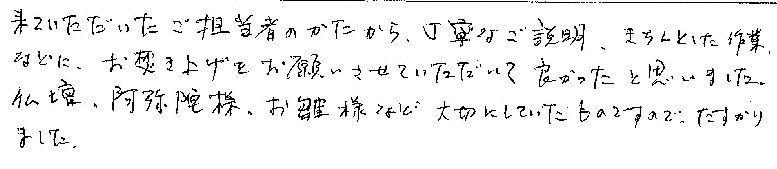 来ていただいたご担当者のかたから、丁寧なご説明、きちんとした作業、
などに、お焚き上げをお願いさせていただいて良かったと思いました。
仏壇、阿弥陀様、お雛様など大切にしていたものですので、たすかり
ました。